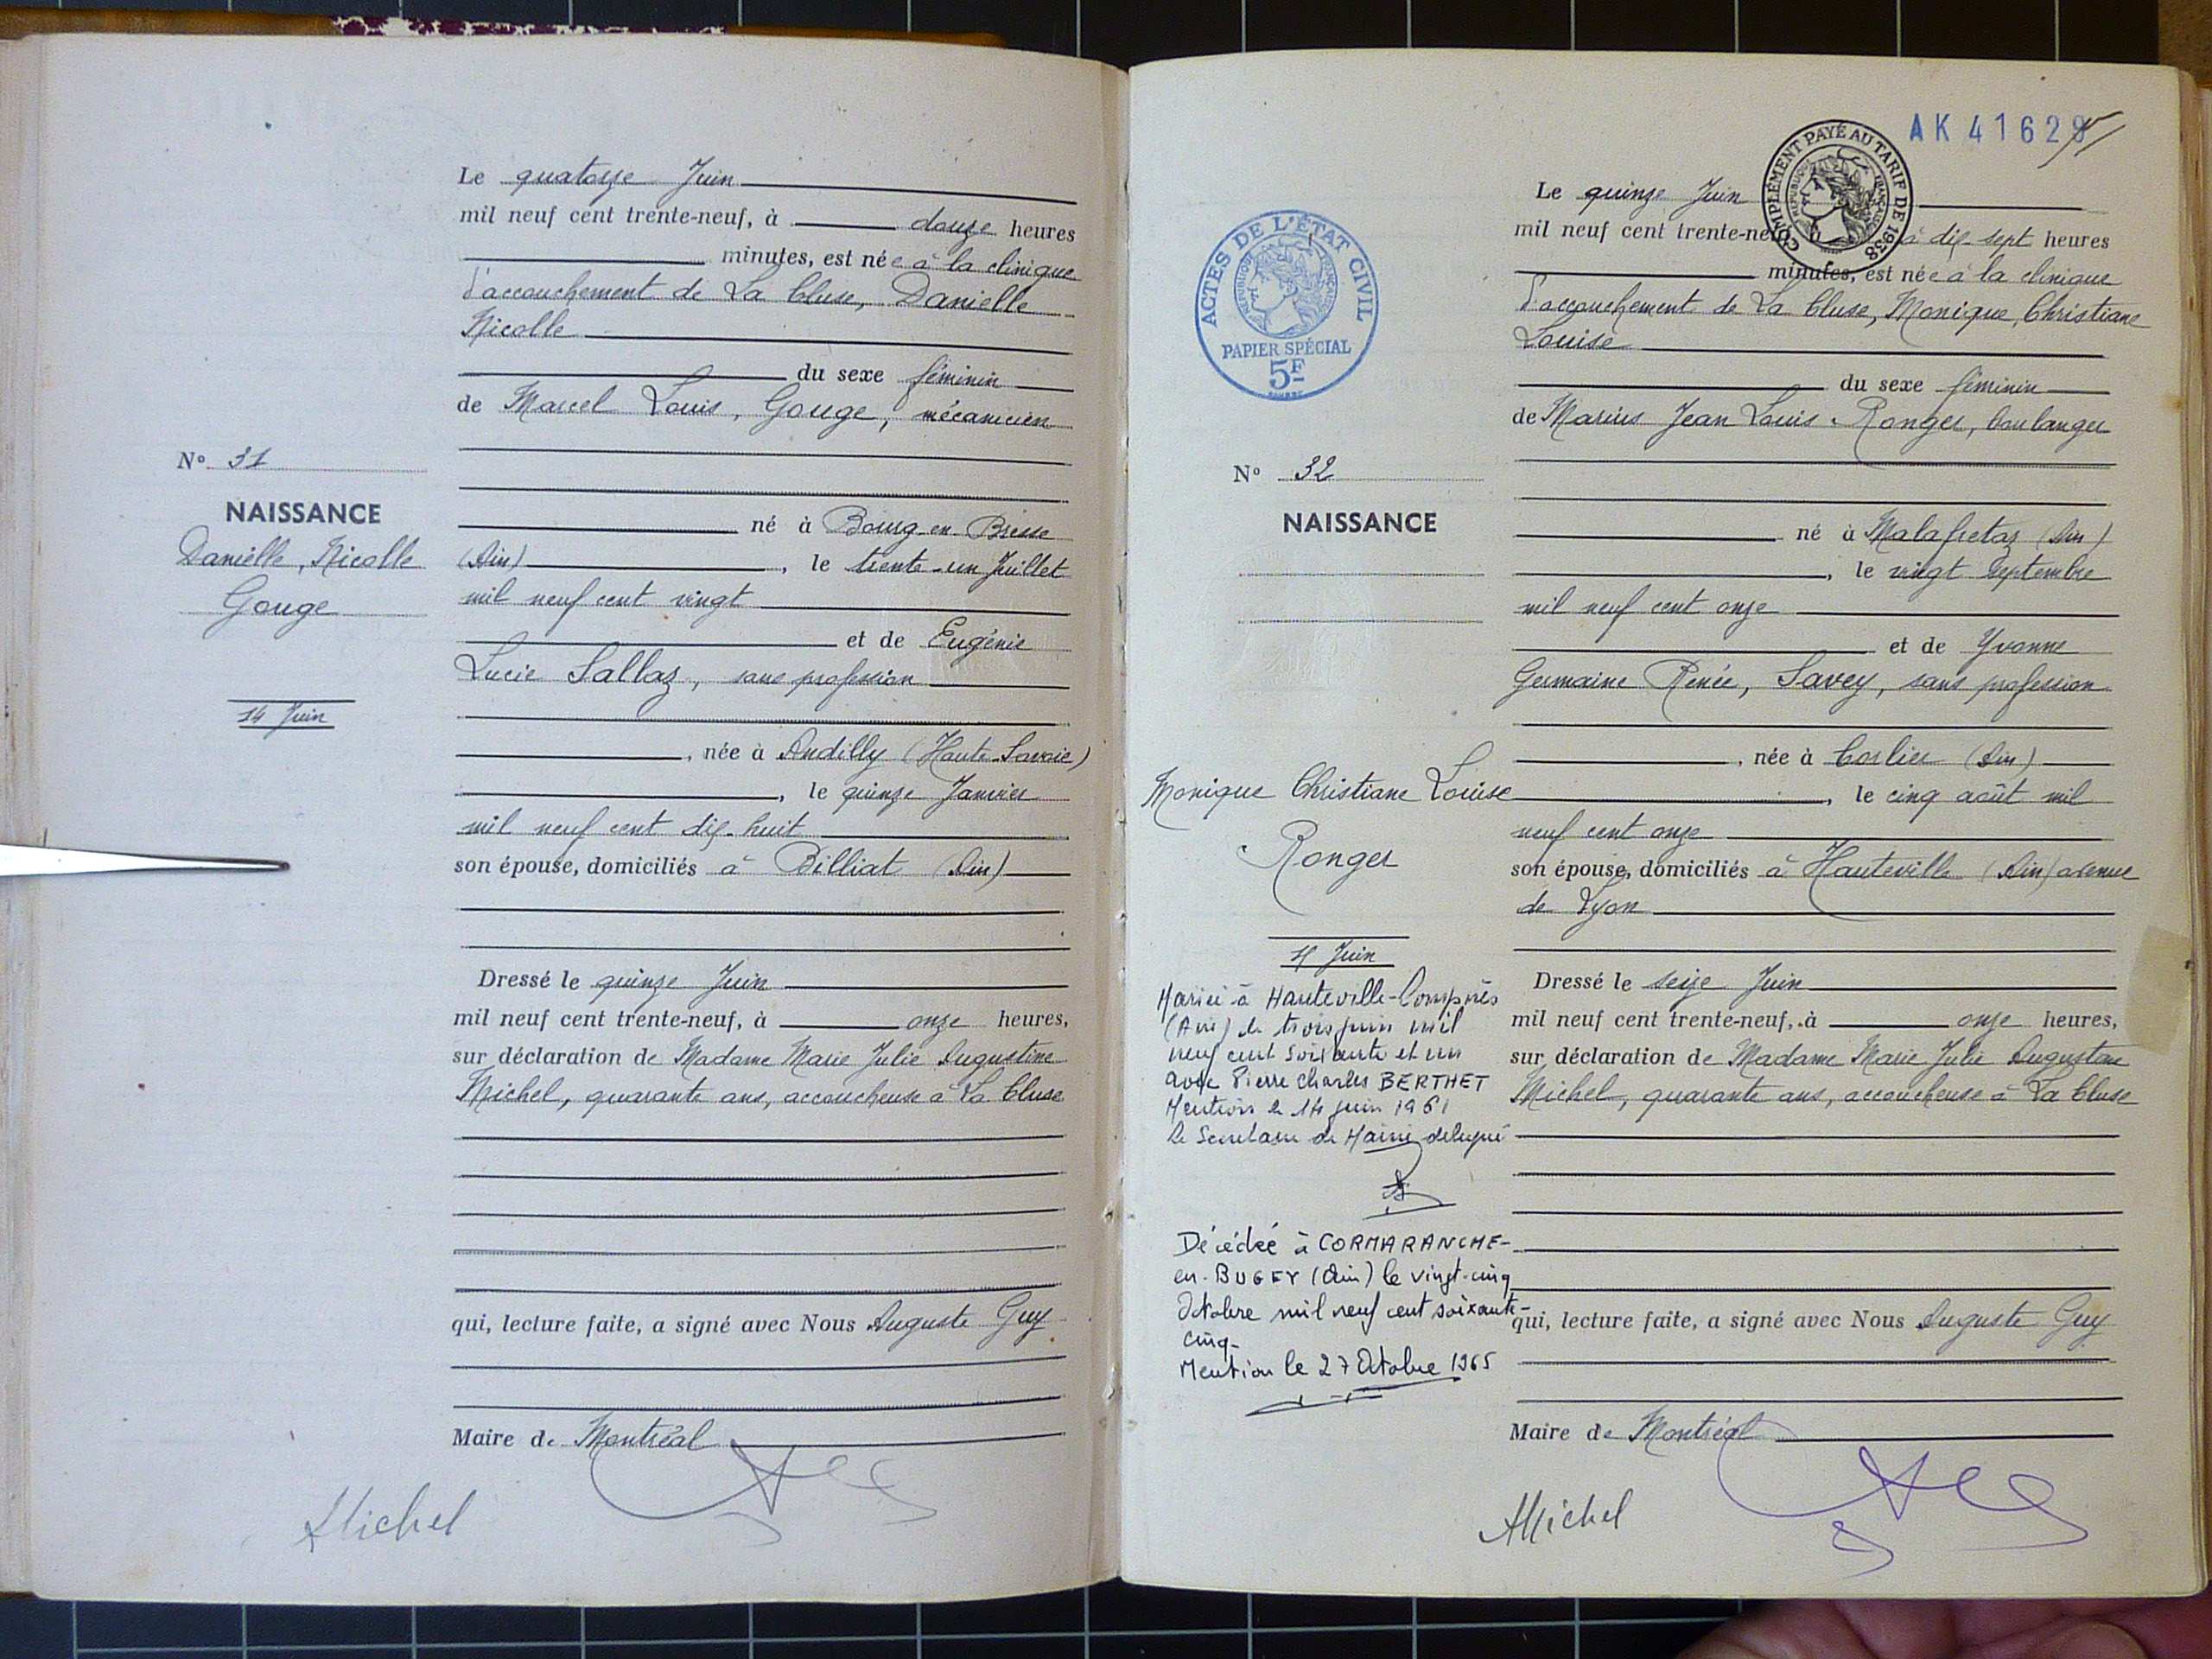 Le quatorze Juin
mil neuf cent trente-neuf, à douze heures
minutes, est née à la clinique
d'accouchement de La Cluse, Danielle
Nicolle
du sexe féminin
de Marcel Louis, Gouge, mécanicien
N° 31
NAISSANCE
Danielle, Nicolle
Gouge
14 Juin
né à Bourg-en-Bresse
(Ain), le trente-un Juillet
mil neuf cent vingt
et de Eugénie
Lucie Sallaz, sans profession
, née à Andilly (Haute-Savoie)
, le quinze Janvier
mil neuf cent dix-huit
son épouse, domiciliés à Billiat (Ain)
Dressé le quinze Juin
mil neuf cent trente-neuf, à onze heures,
sur déclaration de Madame Marie Julie Augustine
Michel, quarante ans, accoucheuse à La Cluse
qui, lecture faite, a signé avec Nous Auguste Guy
Maire de Montréal
AMichel
AK 41629
COMPLÉMENT PAYÉ AU TARIF DE 1938
RÉPUBLIQUE FRANÇAISE
ACTES DE L'ÉTAT CIVIL
RÉPUBLIQUE FRANÇAISE
PAPIER SPÉCIAL
5F
Le quinze Juin
mil neuf cent trente-neuf, à dix-sept heures
minutes, est née à la clinique
d'accouchement de La Cluse, Monique, Christiane
Louise
du sexe féminin
de Marius Jean Louis Ronger, boulanger
N° 32
NAISSANCE
né à Malafretaz (Ain)
, le vingt Septembre
mil neuf cent onze
et de Yvonne
Germaine Renée, Savey, sans profession
, née à Corlier (Ain)
, le cinq août mil
neuf cent onze
son épouse, domiciliés à Hauteville (Ain) avenue
de Lyon
Monique Christiane Louise
Ronger
Juin
Mariée à Hauteville-Lompnès
(Ain) le trois juin mil
neuf cent soixante et un
avec Pierre Charles BERTHET
Mention le 14 juin 1961
Le Secrétaire de Mairie délégué
Décédée à CORMARANCHE-
en-BUGEY (Ain) le vingt-cinq
Octobre mil neuf cent soixante-
cinq-
Mention le 27 Octobre 1965
Dressé le seize Juin
mil neuf cent trente-neuf, à onze heures,
sur déclaration de Madame Marie Julie Augustine
Michel, quarante ans, accoucheuse à La Cluse
qui, lecture faite, a signé avec Nous Auguste Guy
Maire de Montréal
AMichel